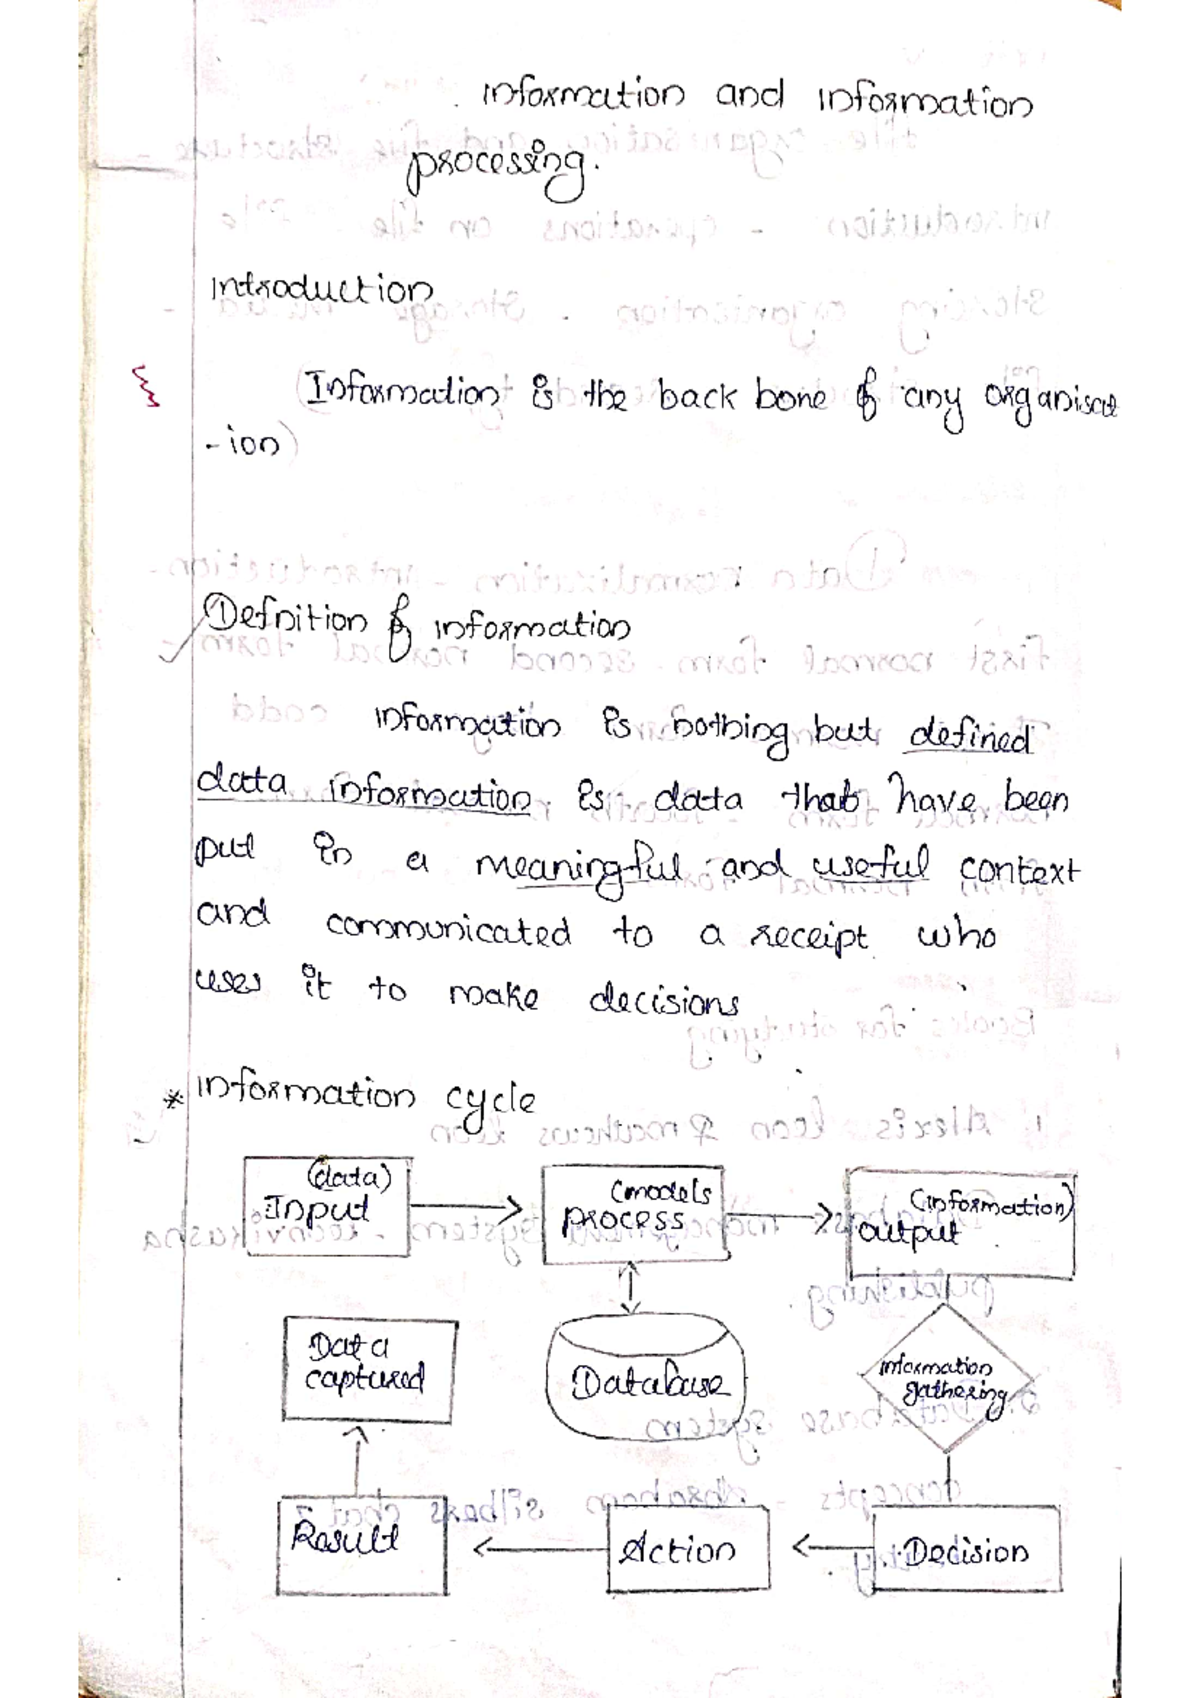 information and information
processing.
introduction
(Information is the back bone of any organisat
-ion)
Defnition of information
information is nothing but defined
data information is data that have been
put in a meaningful and useful context
and communicated to a receipt who
uses it to make decisions
* information cycle
(data)
Input
(models
process
(information)
output
Data
captured
Database
information
gathering
Result
Action
Decision